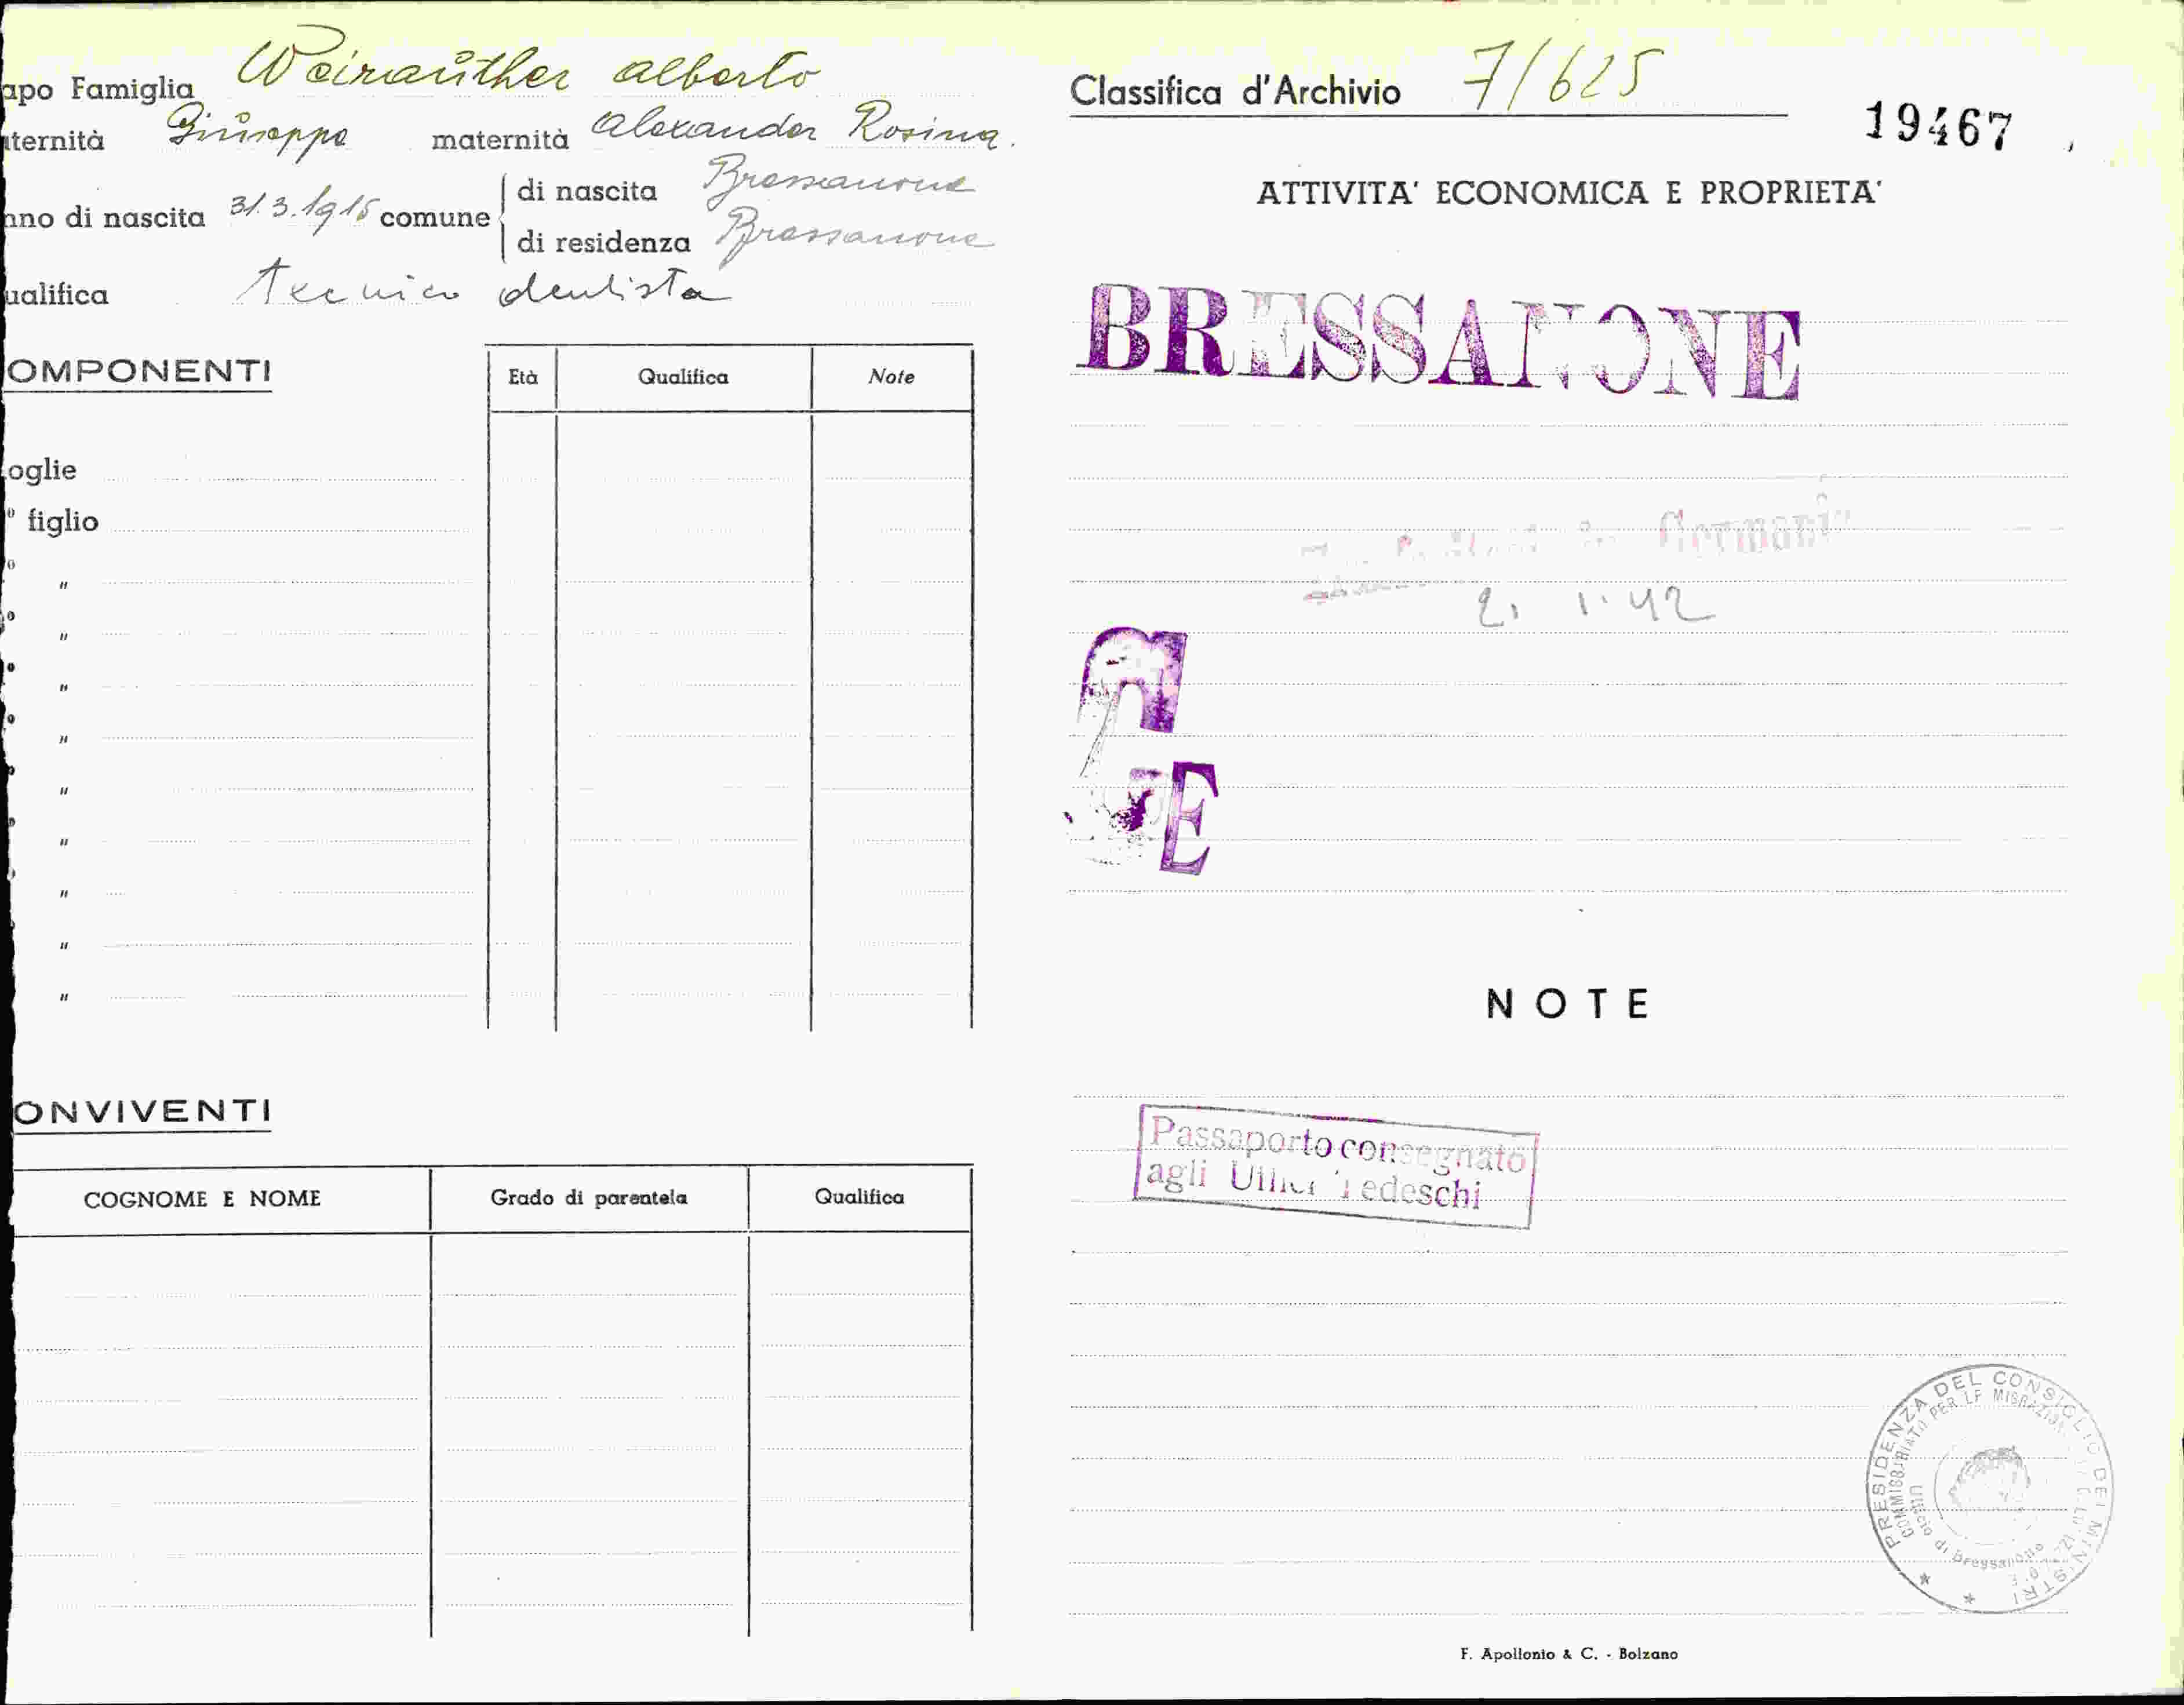 apo Famiglia Weirauther Alberto
ternità Giuseppe maternità Alexander Rosina.
nno di nascita 31.3.1915 comune
di nascita Bressanone
di residenza Bressanone
ualifica tecnico dentista
OMPONENTI
Età Qualifica Note
oglie
º figlio
º "
º "
º "
º "
º "
º "
º "
º "
"
ONVIVENTI
COGNOME E NOME Grado di parentela Qualifica
Classifica d'Archivio 7/625
19467
ATTIVITA' ECONOMICA E PROPRIETA'
BRESSANONE
Germania
2. 1. 42
E
NOTE
Passaporto consegnato
agli Uffici Tedeschi
PRESIDENZA DEL CONSIGLIO DEI MINISTRI
COMMISSARIATO PER LE MIGRAZIONI
Ufficio di Bressanone
F. Apollonio & C. - Bolzano